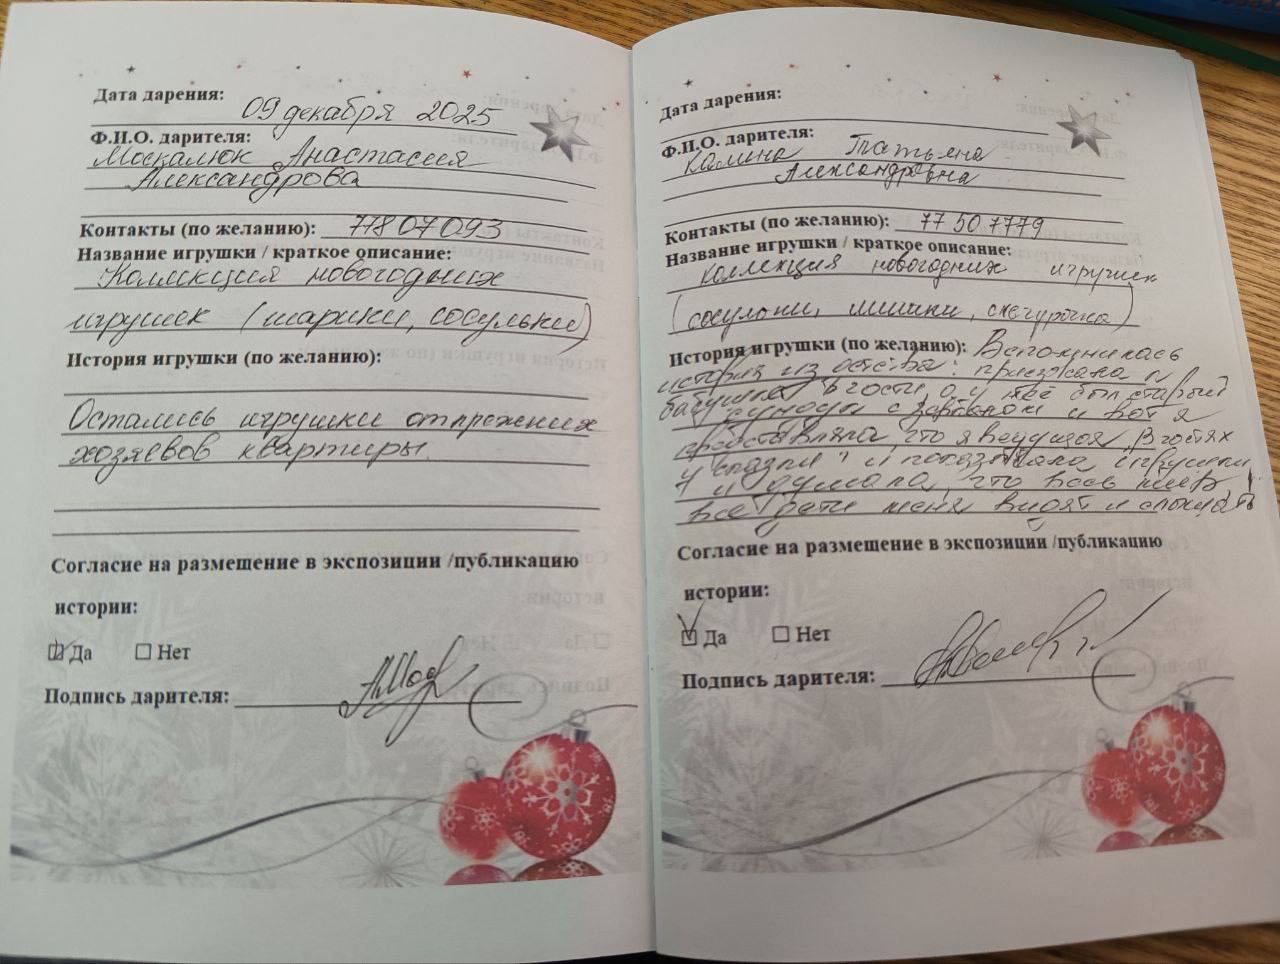 Дата дарения:
09 декабря 2025
Ф.И.О. дарителя:
Москалюк Анастасия
Александрова
Контакты (по желанию): 778 07 093
Название игрушки / краткое описание:
Коллекция новогодних
игрушек (шарики, сосульки)
История игрушки (по желанию):
Остались игрушки от прежних
хозяевов квартиры.
Согласие на размещение в экспозиции /публикацию
истории:
Да Нет
Подпись дарителя:
Дата дарения:
Ф.И.О. дарителя:
Калина Татьяна
Александровна
Контакты (по желанию): 77 50 7779
Название игрушки / краткое описание:
коллекция новогодних игрушек
(сосульки, мишки, снегурочка)
История игрушки (по желанию): Вспомнилась
история из детства: приезжала к
бабушке в гости, а у неё был старый
и вот я
представляла, что я ведущая "В гостях
у сказки" и показывала игрушки
и думала, что весь мир
все дети меня видят и слышат!
Согласие на размещение в экспозиции /публикацию
истории:
Да Нет
Подпись дарителя: